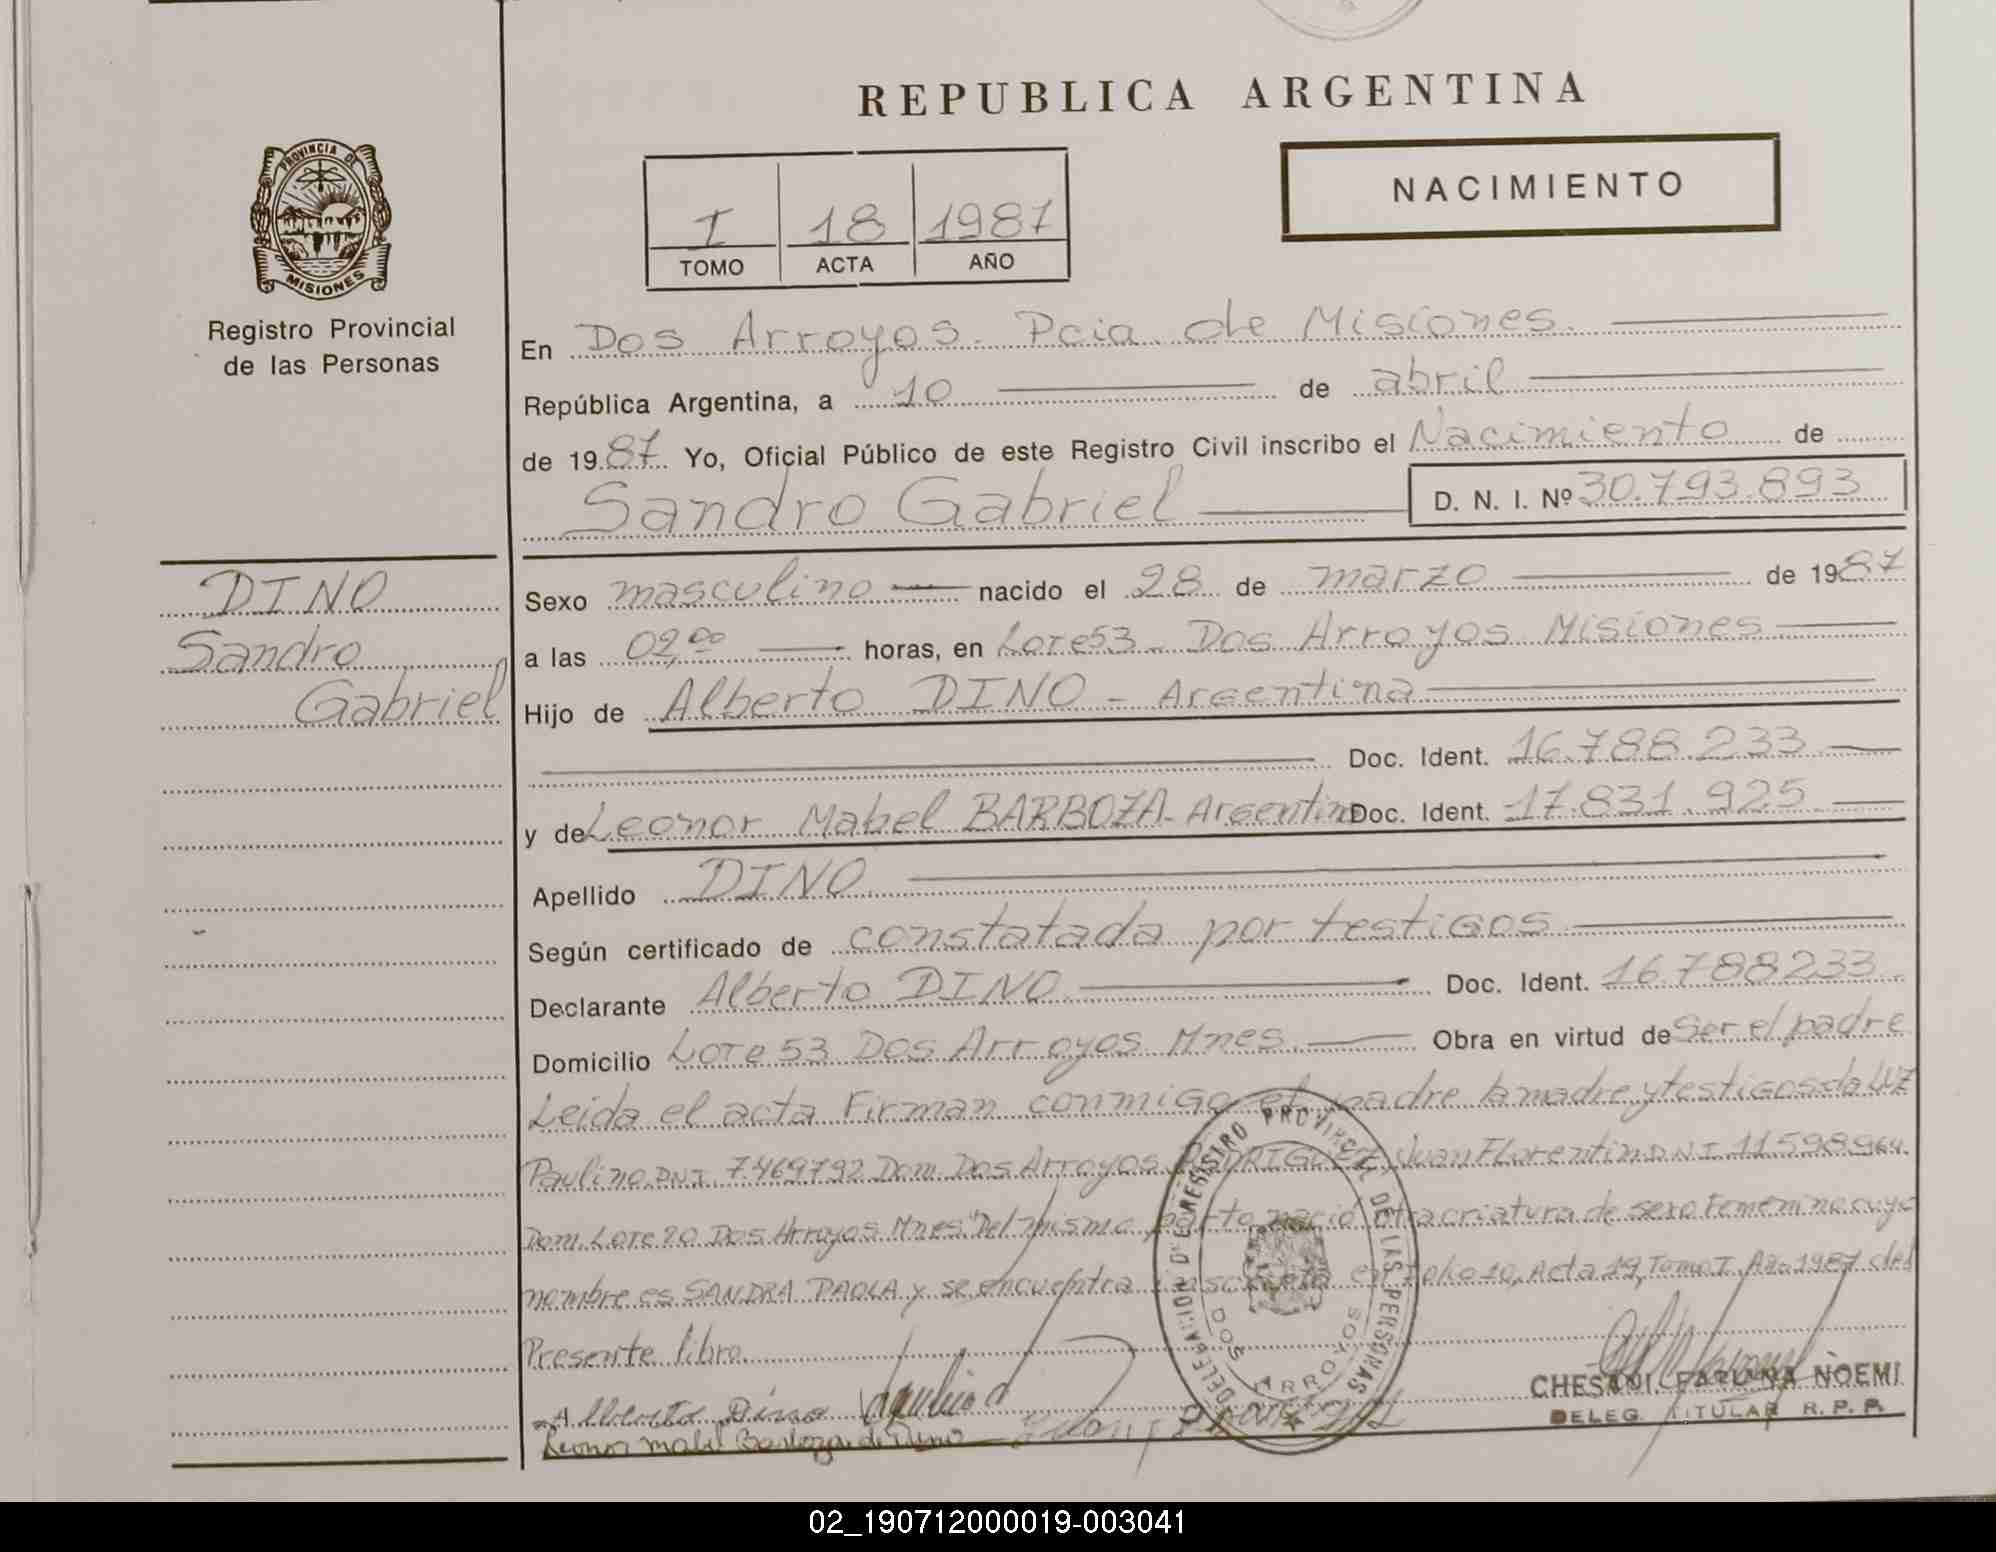 REPUBLICA ARGENTINA
NACIMIENTO
I 18 1987
TOMO ACTA AÑO
PROVINCIA DE
MISIONES
Registro Provincial
de las Personas
En Dos Arroyos. Pcia. de Misiones.
República Argentina, a 10 de abril
de 1987. Yo, Oficial Público de este Registro Civil inscribo el Nacimiento de
Sandro Gabriel D. N. I. Nº 30.793.893
DINO
Sandro
Gabriel
Sexo masculino nacido el 28 de marzo de 1987
a las 02,00 horas, en Lote 53 - Dos Arroyos Misiones
Hijo de Alberto DINO - Argentina
Doc. Ident. 16.788.233
y de Leonor Mabel BARBOZA - Argentina Doc. Ident. 17.831.925
Apellido DINO
Según certificado de constatada por testigos
Declarante Alberto DINO Doc. Ident. 16.788233
Domicilio Lote 53 Dos Arroyos Mnes. Obra en virtud de Ser el padre
Leida el acta Firman conmigo el padre la madre y testigos da LUZ
Paulino. DNI. 7469792 Dom. Dos Arroyos RODRIGUEZ, Juan Florentin DNI 11598964.
Dom. Lote 20 Dos Arroyos Mnes. "Del mismo parto nacio otra criatura de sexo Femenino cuyo
nombre es SANDRA PAOLA y se encuentra inscripta en Folio 10, Acta 19, Tomo I Año 1987 del
Presente libro.
DELEGACION DEL REGISTRO PROVINCIAL DE LAS PERSONAS
DOS ARROYOS
Alberto Dino
Leonor Mabel Barboza de Dino
CHESANI FABIANA NOEMI
DELEG. TITULAR R. P. P.
02_190712000019-003041